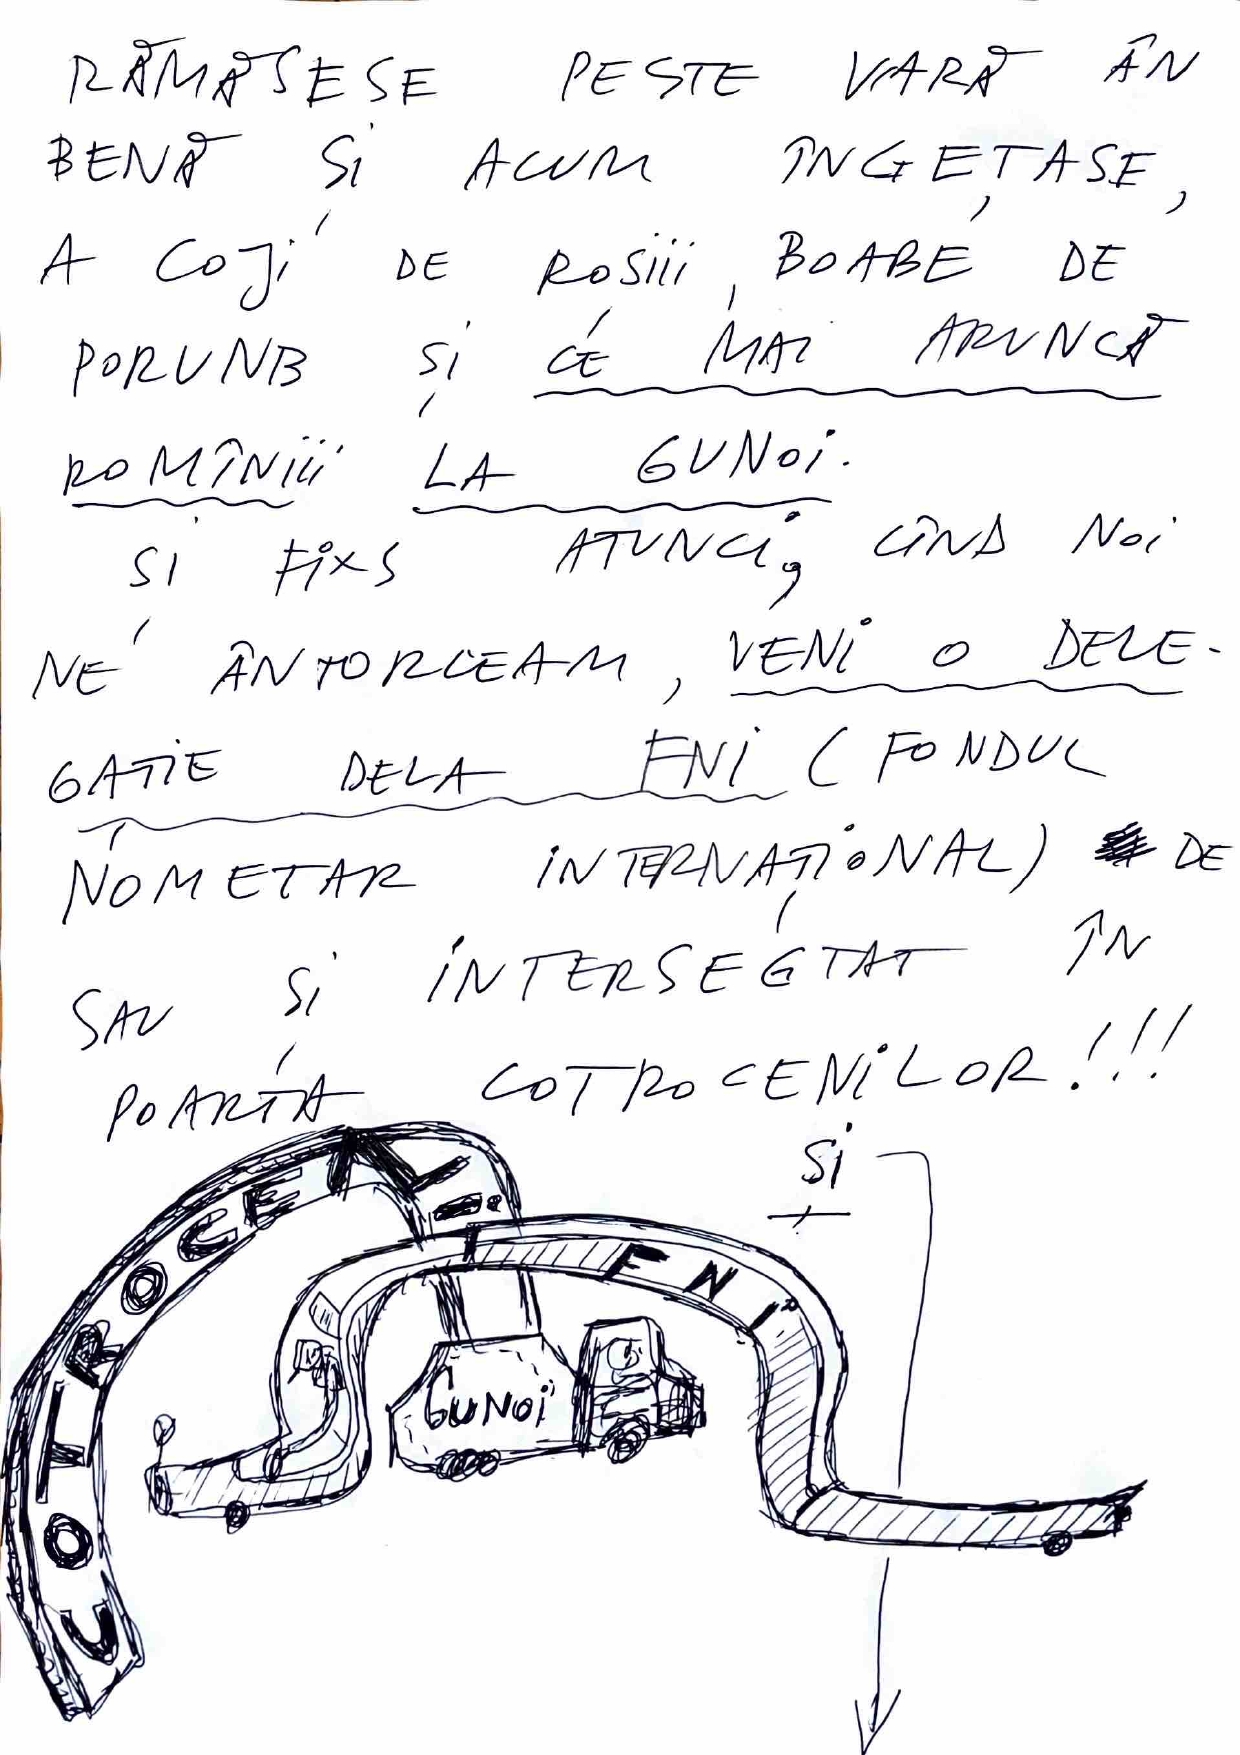 RĂMĂSESE PESTE VARĂ ÂN
BENĂ ȘI ACUM ÎNGEȚASE,
A COJI DE ROȘIII, BOABE DE
PORUNB ȘI CE MAI ARUNCĂ
ROMÎNIII LA GUNOI.
ȘI FIXS ATUNCI, CÎND NOI
NE ÂNTORCEAM, VENI O DELE-
GAȚIE DELA FNI (FONDUL
NOMETAR INTERNAȚIONAL) DE
SAU ȘI INTERSEGTAT ÎN
POARTA COTROCENILOR!!!
ȘI
COTROCENI
FNI
GUNOI